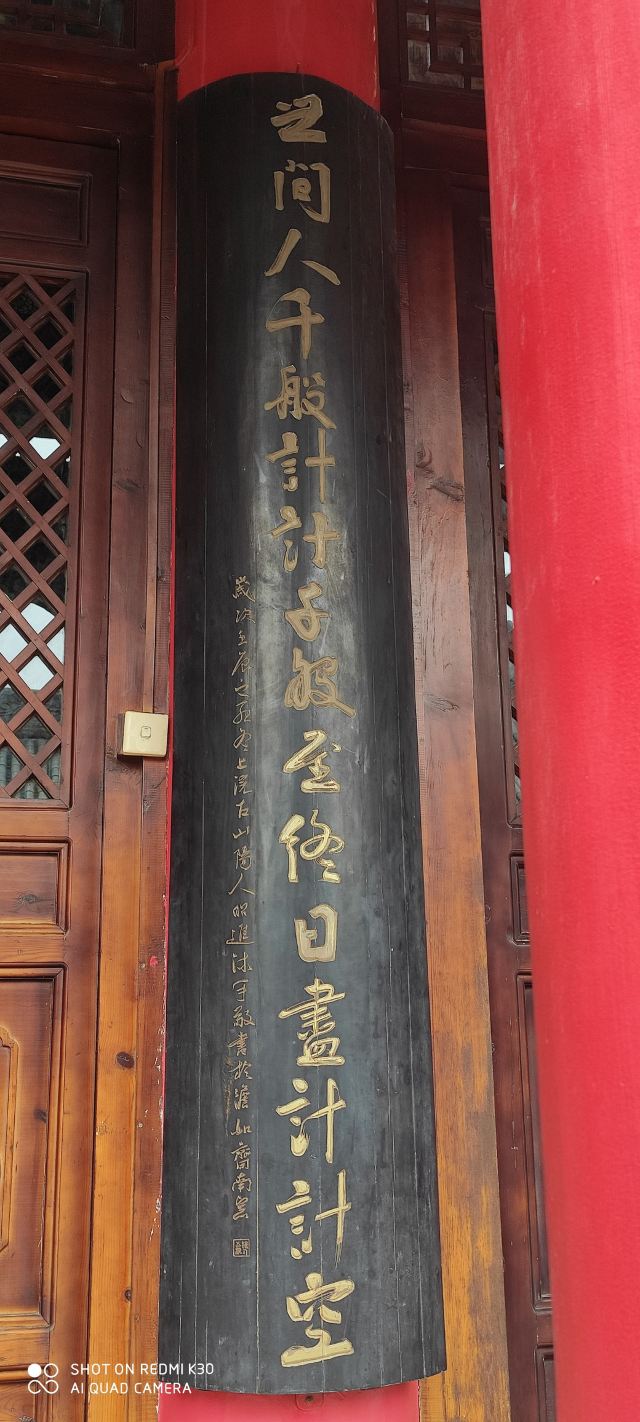 世間人千般計計千般至終日盡計計空
歲次壬辰之孟冬上浣古山陽人昭進沐手敬書於澹如齋南窗
SHOT ON REDMI K30
AI QUAD CAMERA